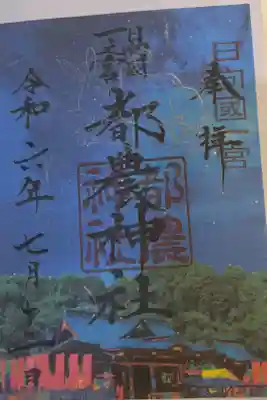 奉拝
日向國一宮
日向國
一之宮
都農神社
都農
神社
令和六年七月十一日